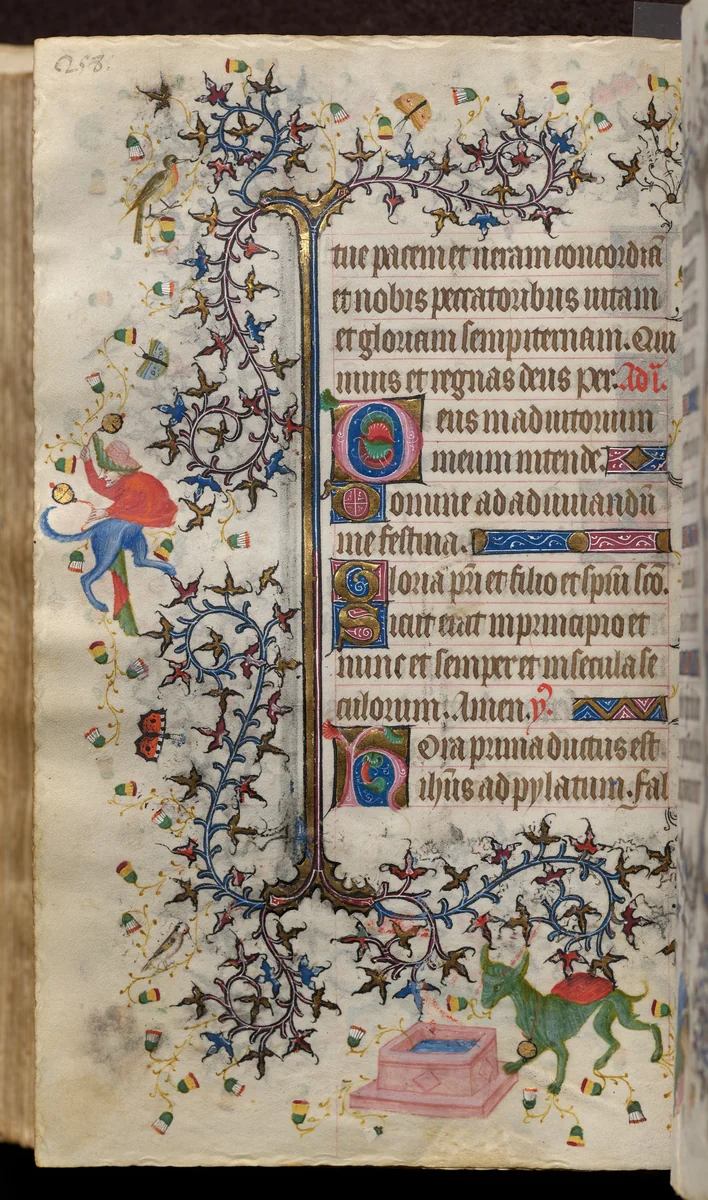 258.
tue pacem et ueram concordiã
et nobis peccatoribus uitam
et gloriam sempiternam. Qui
uiuis et regnas deus per. Ad .i.
Deus in adiutorium
meum intende.
Domine ad adiuuandũ
me festina.
Gloria pr̃i et filio et spũi scõ.
Sicut erat in principio et
nunc et semper et in secula se
culorum. Amen. ỹ.
Hora prima ductus est
ih̃us ad pylatum. fal